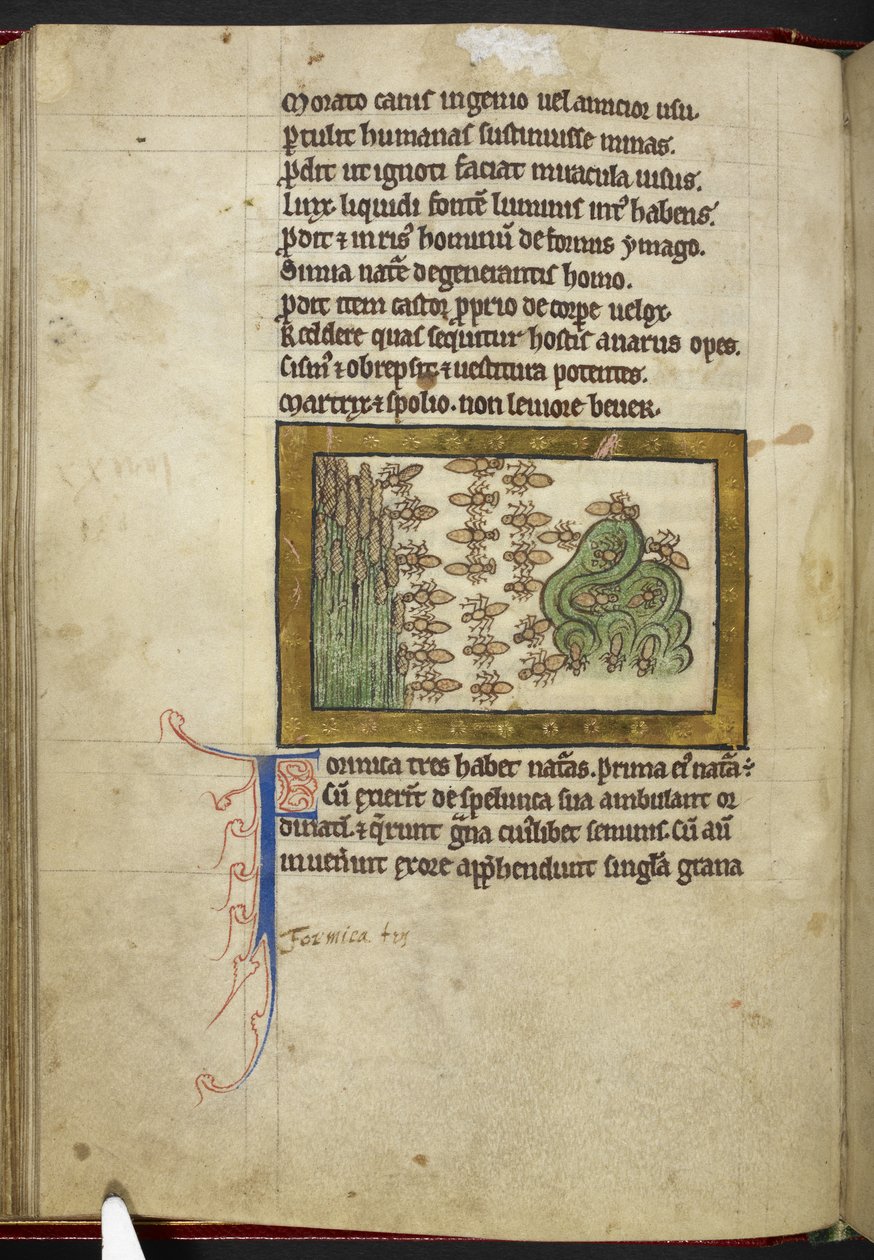 Morato canis ingenio uel amicior usu.
ꝑtulit humanas sustinuisse minas.
ꝓdit ut ignoti faciat miracula uisus.
Linx. liquidi fontē luminis int᷒ habens.
ꝓdit ⁊ in ris᷒ hominū deformis ymago.
Simia natͣe degenerantis homo.
ꝓdit item castor ꝓprio de corꝑe uelox.
Reddere quas sequitur hostis auarus opes.
Cisim᷒ ⁊ obrepsit. ⁊ uestitura potentes.
Martrix. ⁊ spolio. non leuiore beuer.
Formica tres habet natͣas. prima ei᷒ natͣa
Cū exierīt de spelunca sua ambulant or
dinatī. ⁊ q̄runt gͣna cui᷒libet seminis. Cū aū
inuenīunt exore app̄hendunt singl̄a grana
Formica. tres